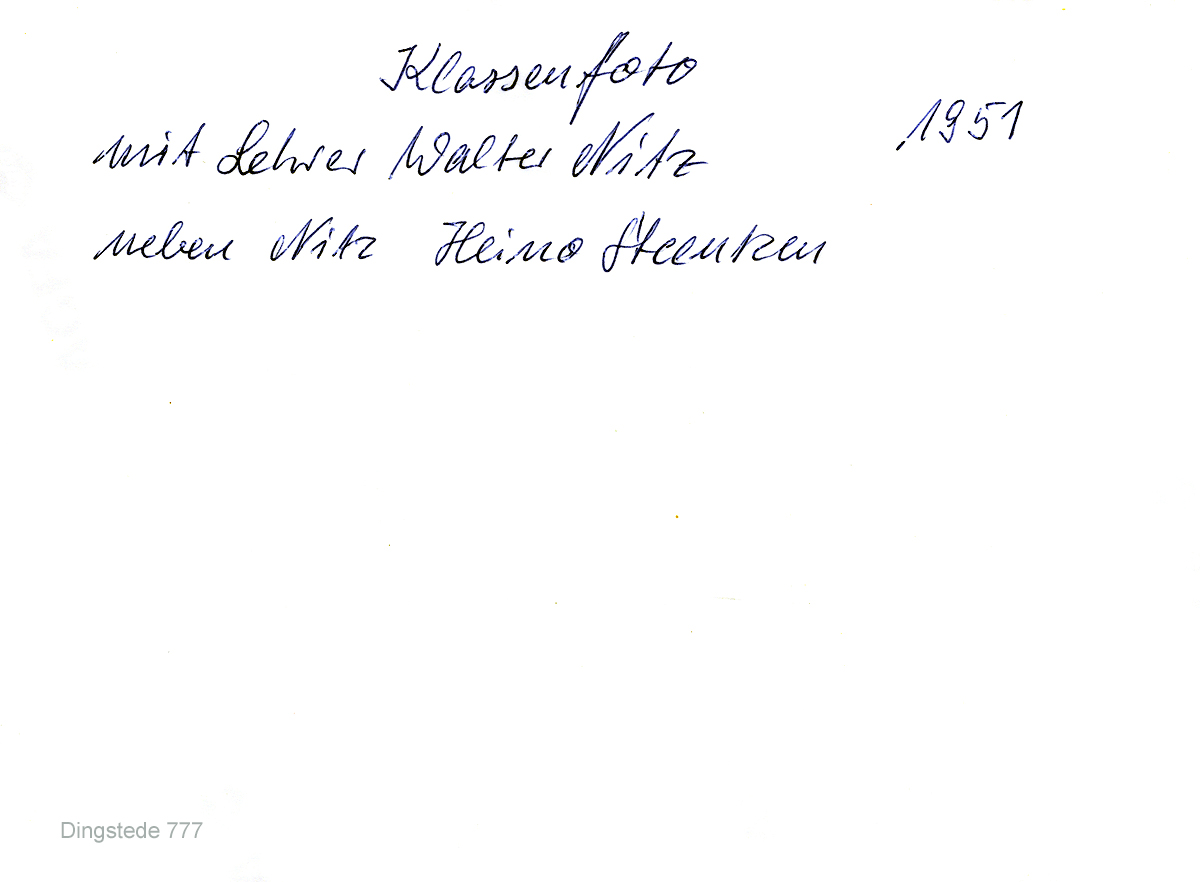 Klassenfoto
mit Lehrer Walter Nitz 1951
neben Nitz Heino Steenken
Dingstede 777